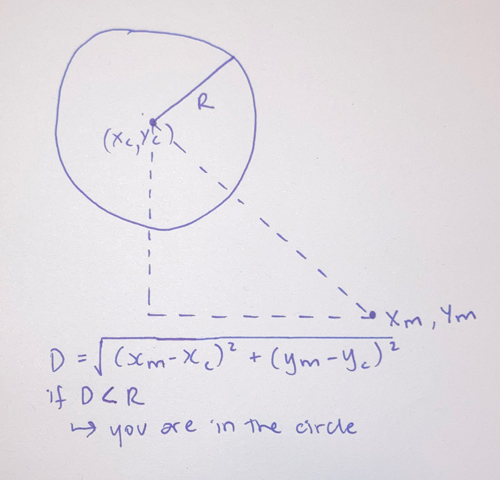 R
(xc, yc)
xm, ym
D = √(xm-xc)² + (ym-yc)²
if D < R
↳ you are in the circle